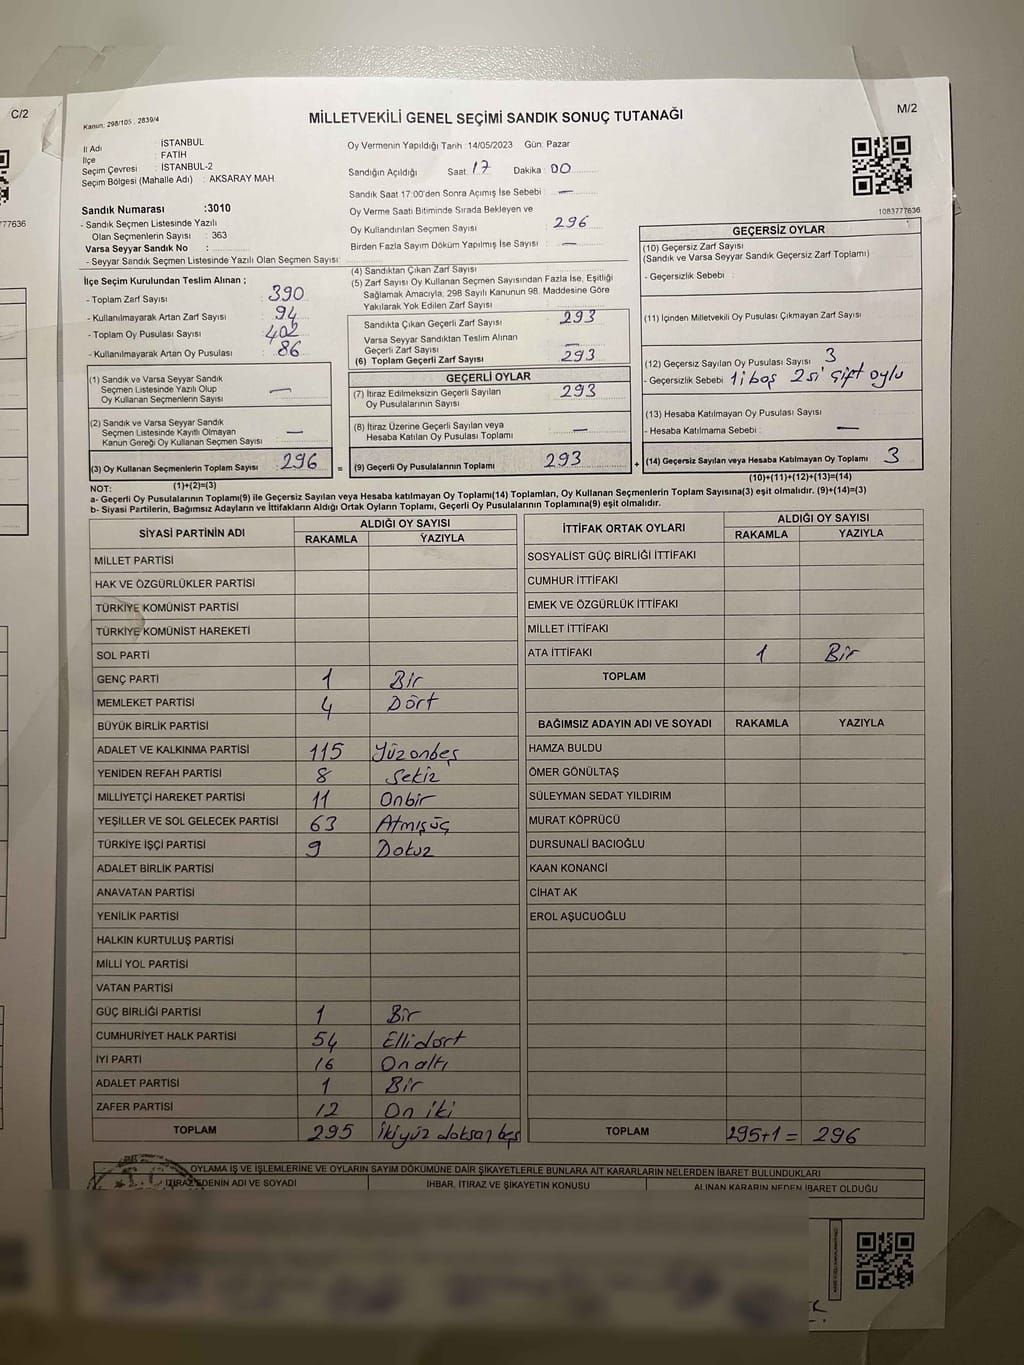 C/2
M/2
Kanun: 298/105 , 2839/4
MİLLETVEKİLİ GENEL SEÇİMİ SANDIK SONUÇ TUTANAĞI
İl Adı : İSTANBUL
İlçe : FATİH
Seçim Çevresi : İSTANBUL-2
Seçim Bölgesi (Mahalle Adı) : AKSARAY MAH.
Oy Vermenin Yapıldığı Tarih :14/05/2023 Gün: Pazar
Sandığın Açıldığı Saat 17 Dakika: 00
Sandık Saat 17:00'den Sonra Açımış İse Sebebi : —
Oy Verme Saati Bitiminde Sırada Bekleyen ve
Oy Kullandırılan Seçmen Sayısı : 296
Birden Fazla Sayım Döküm Yapılmış İse Sayısı : —
1083777636
777636
Sandık Numarası :3010
- Sandık Seçmen Listesinde Yazılı
Olan Seçmenlerin Sayısı : 363
Varsa Seyyar Sandık No :
- Seyyar Sandık Seçmen Listesinde Yazılı Olan Seçmen Sayısı:
İlçe Seçim Kurulundan Teslim Alınan ;
- Toplam Zarf Sayısı : 390
- Kullanılmayarak Artan Zarf Sayısı : 94
- Toplam Oy Pusulası Sayısı : 402
- Kullanılmayarak Artan Oy Pusulası : 86
(1) Sandık ve Varsa Seyyar Sandık
Seçmen Listesinde Yazılı Olup
Oy Kullanan Seçmenlerin Sayısı : —
(2) Sandık ve Varsa Seyyar Sandık
Seçmen Listesinde Kayıtlı Olmayan
Kanun Gereği Oy Kullanan Seçmen Sayısı : —
(3) Oy Kullanan Seçmenlerin Toplam Sayısı : 296 =
(4) Sandıktan Çıkan Zarf Sayısı :
(5) Zarf Sayısı Oy Kullanan Seçmen Sayısından Fazla İse, Eşitliği
Sağlamak Amacıyla, 298 Sayılı Kanunun 98. Maddesine Göre
Yakılarak Yok Edilen Zarf Sayısı :
Sandıkta Çıkan Geçerli Zarf Sayısı : 293
Varsa Seyyar Sandıktan Teslim Alınan
Geçerli Zarf Sayısı : —
(6) Toplam Geçerli Zarf Sayısı : 293
GEÇERLİ OYLAR
(7) İtiraz Edilmeksizin Geçerli Sayılan
Oy Pusulalarının Sayısı : 293
(8) İtiraz Üzerine Geçerli Sayılan veya
Hesaba Katılan Oy Pusulası Toplamı : —
(9) Geçerli Oy Pusulalarının Toplamı : 293 +
GEÇERSİZ OYLAR
(10) Geçersiz Zarf Sayısı :
(Sandık ve Varsa Seyyar Sandık Geçersiz Zarf Toplamı)
- Geçersizlik Sebebi :
(11) İçinden Milletvekili Oy Pusulası Çıkmayan Zarf Sayısı :
(12) Geçersiz Sayılan Oy Pusulası Sayısı : 3
- Geçersizlik Sebebi : 1i boş 2si çift oylu
(13) Hesaba Katılmayan Oy Pusulası Sayısı :
- Hesaba Katılmama Sebebi : —
(14) Geçersiz Sayılan veya Hesaba Katılmayan Oy Toplamı : 3
(10)+(11)+(12)+(13)=(14)
NOT: (1)+(2)=(3)
a- Geçerli Oy Pusulalarının Toplamı(9) ile Geçersiz Sayılan veya Hesaba katılmayan Oy Toplamı(14) Toplamları, Oy Kullanan Seçmenlerin Toplam Sayısına(3) eşit olmalıdır. (9)+(14)=(3)
b- Siyasi Partilerin, Bağımsız Adayların ve İttifakların Aldığı Ortak Oyların Toplamı, Geçerli Oy Pusulalarının Toplamına(9) eşit olmalıdır.
SİYASİ PARTİNİN ADI ALDIĞI OY SAYISI
RAKAMLA YAZIYLA
MİLLET PARTİSİ
HAK VE ÖZGÜRLÜKLER PARTİSİ
TÜRKİYE KOMÜNİST PARTİSİ
TÜRKİYE KOMÜNİST HAREKETİ
SOL PARTİ
GENÇ PARTİ 1 Bir
MEMLEKET PARTİSİ 4 Dört
BÜYÜK BİRLİK PARTİSİ
ADALET VE KALKINMA PARTİSİ 115 Yüzonbeş
YENİDEN REFAH PARTİSİ 8 Sekiz
MİLLİYETÇİ HAREKET PARTİSİ 11 Onbir
YEŞİLLER VE SOL GELECEK PARTİSİ 63 Atmışüç
TÜRKİYE İŞÇİ PARTİSİ 9 Dokuz
ADALET BİRLİK PARTİSİ
ANAVATAN PARTİSİ
YENİLİK PARTİSİ
HALKIN KURTULUŞ PARTİSİ
MİLLİ YOL PARTİSİ
VATAN PARTİSİ
GÜÇ BİRLİĞİ PARTİSİ 1 Bir
CUMHURİYET HALK PARTİSİ 54 Ellidört
İYİ PARTİ 16 On altı
ADALET PARTİSİ 1 Bir
ZAFER PARTİSİ 12 On iki
TOPLAM 295 İkiyüz doksan beş
İTTİFAK ORTAK OYLARI ALDIĞI OY SAYISI
RAKAMLA YAZIYLA
SOSYALİST GÜÇ BİRLİĞİ İTTİFAKI
CUMHUR İTTİFAKI
EMEK VE ÖZGÜRLÜK İTTİFAKI
MİLLET İTTİFAKI
ATA İTTİFAKI 1 Bir
TOPLAM
BAĞIMSIZ ADAYIN ADI VE SOYADI RAKAMLA YAZIYLA
HAMZA BULDU
ÖMER GÖNÜLTAŞ
SÜLEYMAN SEDAT YILDIRIM
MURAT KÖPRÜCÜ
DURSUNALİ BACIOĞLU
KAAN KONANCİ
CİHAT AK
EROL AŞUCUOĞLU
TOPLAM 295+1 = 296
OYLAMA İŞ VE İŞLEMLERİNE VE OYLARIN SAYIM DÖKÜMÜNE DAİR ŞİKAYETLERLE BUNLARA AİT KARARLARIN NELERDEN İBARET BULUNDUKLARI
T.C.
İTİRAZ EDENİN ADI VE SOYADI İHBAR, İTİRAZ VE ŞİKAYETİN KONUSU ALINAN KARARIN NEDEN İBARET OLDUĞU